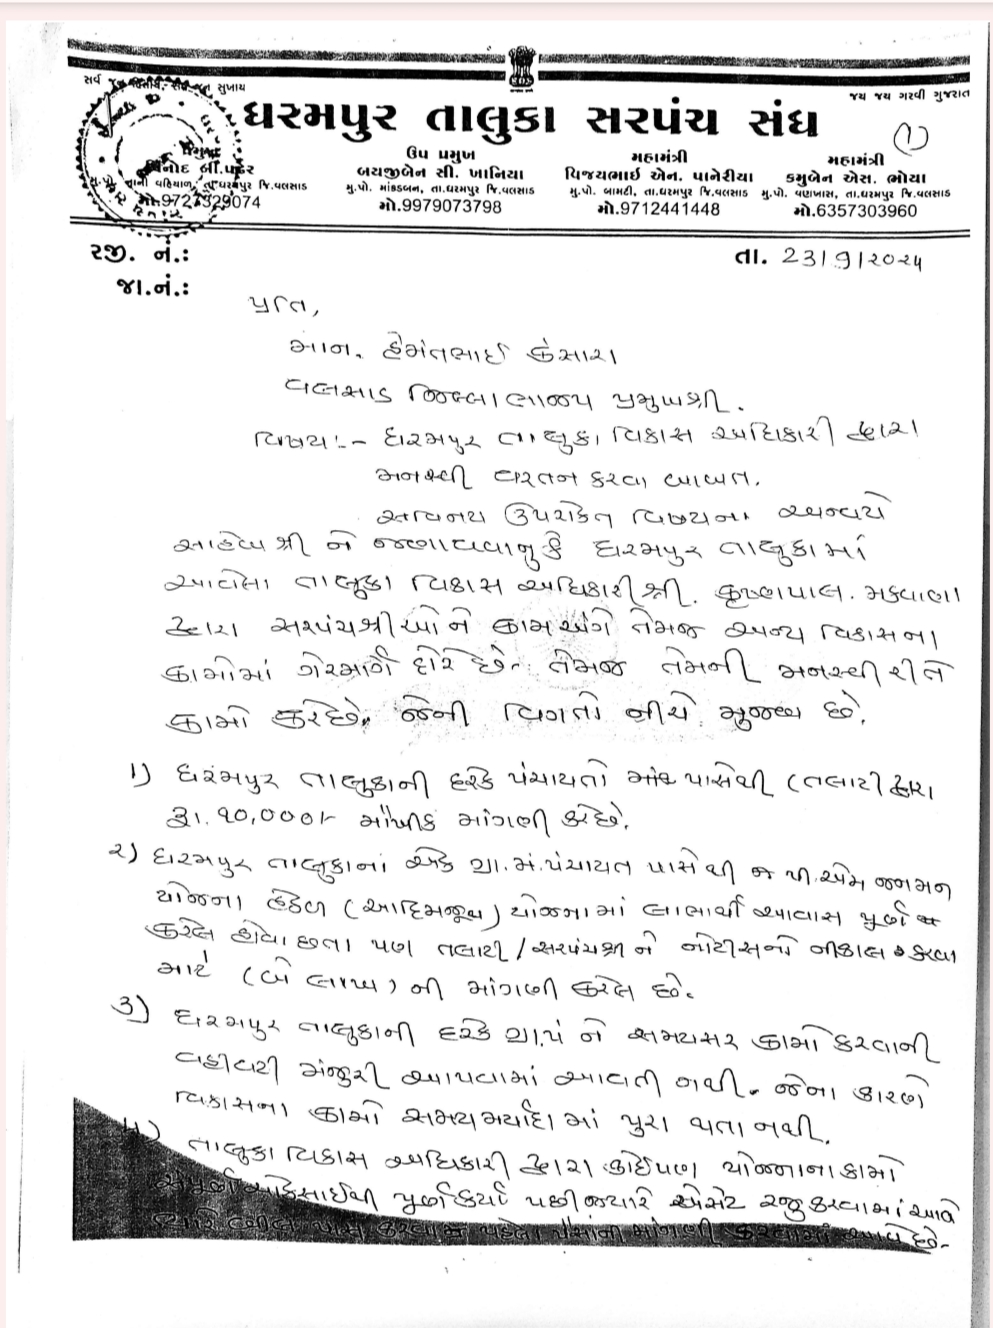 સર્વ જન હિતાય, સર્વ જન સુખાય
જય જય ગરવી ગુજરાત
ધરમપુર તાલુકા સરપંચ સંઘ
(1)
પ્રમુખ
વિનોદ બી. પટેલ
તા.ધરમપુર જિ.વલસાડ
ઉપ પ્રમુખ
બયજીબેન સી. ખાનિયા
મુ.પો. માંકડબન, તા.ધરમપુર જિ.વલસાડ
મો.9979073798
મહામંત્રી
વિજયભાઈ એન. પાનેરીયા
મુ.પો. બામટી, તા.ધરમપુર જિ.વલસાડ
મો.9712441448
મહામંત્રી
કમુબેન એસ. ભોયા
મુ.પો. વણખાસ, તા.ધરમપુર જિ.વલસાડ
મો.6357303960
રજી. નં.:
તા. 23/9/૨૦૨૫
જા.નં.:
પ્રતિ,
માન. હેમંતભાઈ કંસારા
વલસાડ જિલ્લા ભાજપ પ્રમુખશ્રી.
વિષય:- ધરમપુર તાલુકા વિકાસ અધિકારી દ્વારા
મનસ્વી વરતન કરવા બાબત.
સવિનય ઉપરોક્ત વિષયના અન્વયે
સાહેબ શ્રી ને જણાવવાનુ કે ધરમપુર તાલુકામાં
આવેલા તાલુકા વિકાસ અધિકારીશ્રી. કૃષ્ણપાલ. મકવાણા
દ્વારા સરપંચશ્રીઓ ને કામ અંગે તેમજ અન્ય વિકાસના
કામોમાં ગેરમાર્ગે દોરે છે. તેમજ તેમની મનસ્વી રીતે
કામો કરે છે. જેની વિગતો નીચે મુજબ છે.
૧) ધરમપુર તાલુકાની દરેક પંચાયતો પાસેથી (તલાટી દ્વારા
રૂા. ૧૦,૦૦૦/- મૌખીક માંગણી કરે છે.
૨) ધરમપુર તાલુકાનાં એક ગ્રા.મં.પંચાયત પાસેથી જ પી.એમ જનમન
યોજના હેઠળ (આદિમજૂથ) યોજનામાં લાભાર્થી આવાસ પૂર્ણ
કરેલ હોવા છતા પણ તલાટી/સરપંચશ્રી ને નોટીસનો નીકાલ કરવા
માટે (બે લાખ) ની માંગણી કરેલ છે.
૩) ધરમપુર તાલુકાની દરેક ગ્રા.પં ને સમયસર કામો કરવાની
વહીવટી મંજુરી આપવામાં આવતી નથી. જેના કારણે
વિકાસના કામો સમયમર્યાદામાં પુરા થતા નથી.
૪) તાલુકા વિકાસ અધિકારી દ્વારા કોઈપણ યોજનાના કામો
સંપૂર્ણ પૂર્ણ કર્યા પછી જ્યારે રજુ કરવામાં આવે
ત્યારે બીલ પાસ કરવાના પહેલા પૈસાની માંગણી કરવામાં આવે છે.